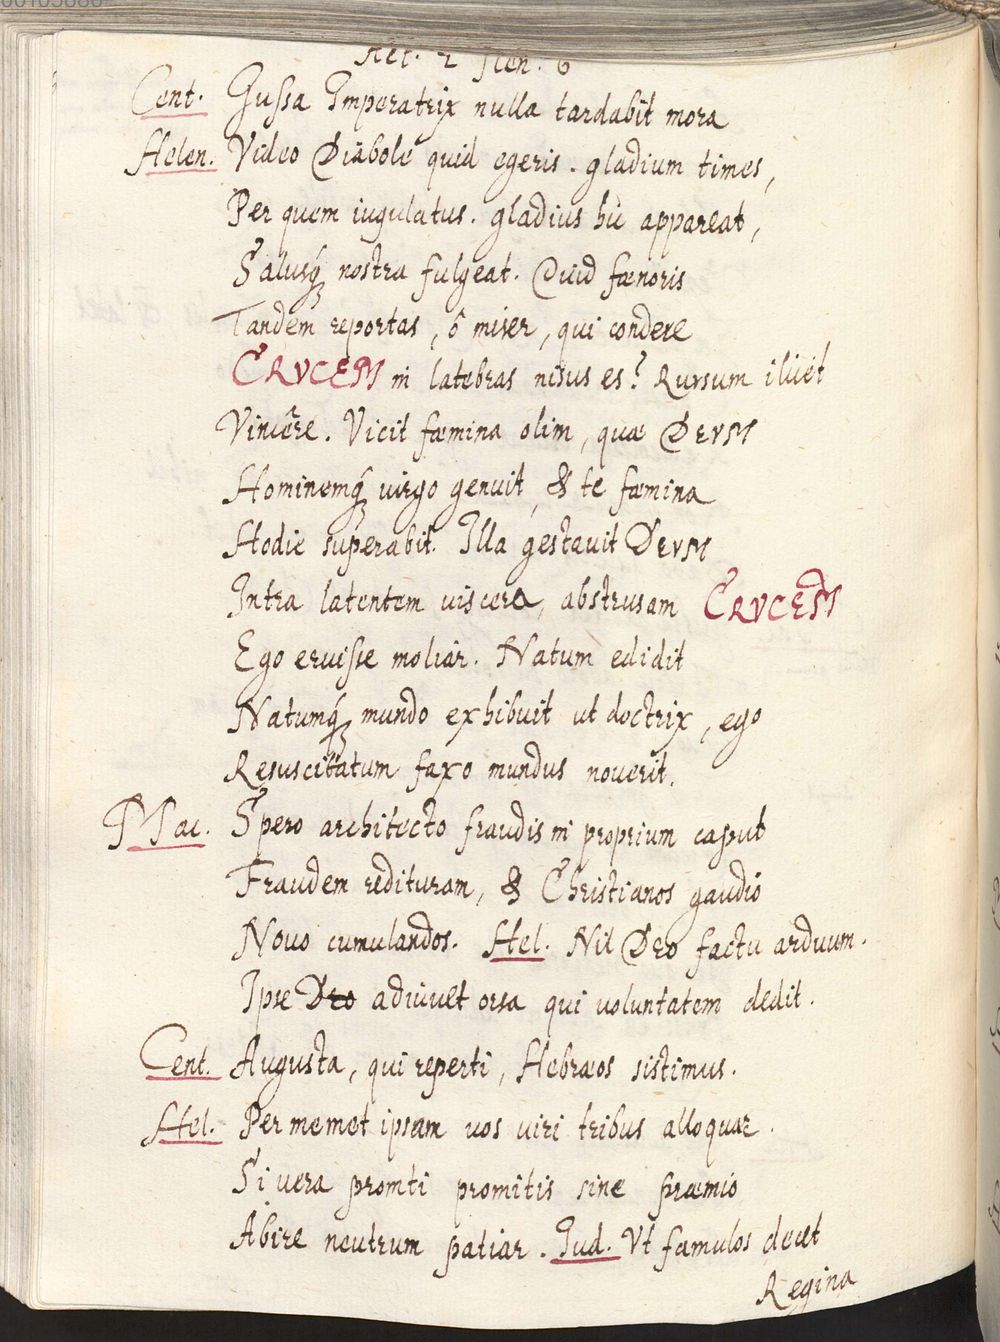 Act. 2 Scen. 6
Cent. Jussa Imperatrix nulla tardabit mora
Helen. Video Diabole quid egeris. gladium times,
Per quem iugulatus. gladius hic appareat,
Salusq̃ nostra fulgeat. Quid fœnoris
Tandem reportas, ô miser, qui condere
CRVCEM in latebras nisus es? Rursum iuvet
Vincere. Vicit fœmina olim, quæ DEVM
Hominemq̃ virgo genuit, & te fœmina
Hodie superabit. Illa gestauit DEVM
Intra latentem viscera, abstrusam CRVCEM
Ego eruisse moliar. Natum edidit
Natumq̃ mundo exhibuit ut doctrix, ego
Resuscitatum faxo mundus noverit.
Mac. Spero architecto fraudis in proprium caput
Fraudem redituram, & Christianos gaudio
Novo cumulandos. Hel. Nil Deo factu arduum.
Ipse Deo adiuvet orsa qui voluntatem dedit.
Cent. Augusta, qui reperti, Hebræos sistimus.
Hel. Per memet ipsam vos viri tribus alloquar.
Si vera promti promitis sine præmio
Abire neutrum patiar. Jud. Vt famulos decet
Regina